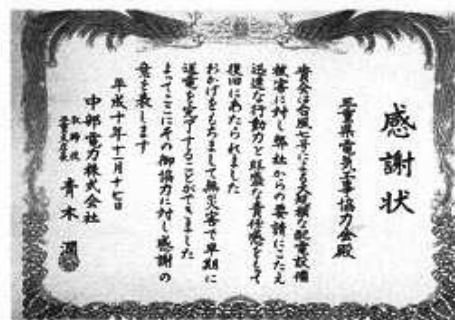 感謝状
三重県電気工事協力会殿
貴会は台風七号による大規模な配電設備
被害に対し弊社からの要請にこたえ
迅速な行動力と旺盛な責任感をもって
復旧にあたられました
おかげをもちまして無災害で早期に
送電を完了することができました
よってここにその御協力に対し感謝の
意を表します
平成十年十一月十七日
中部電力株式会社
取締役
三重支店長
青木